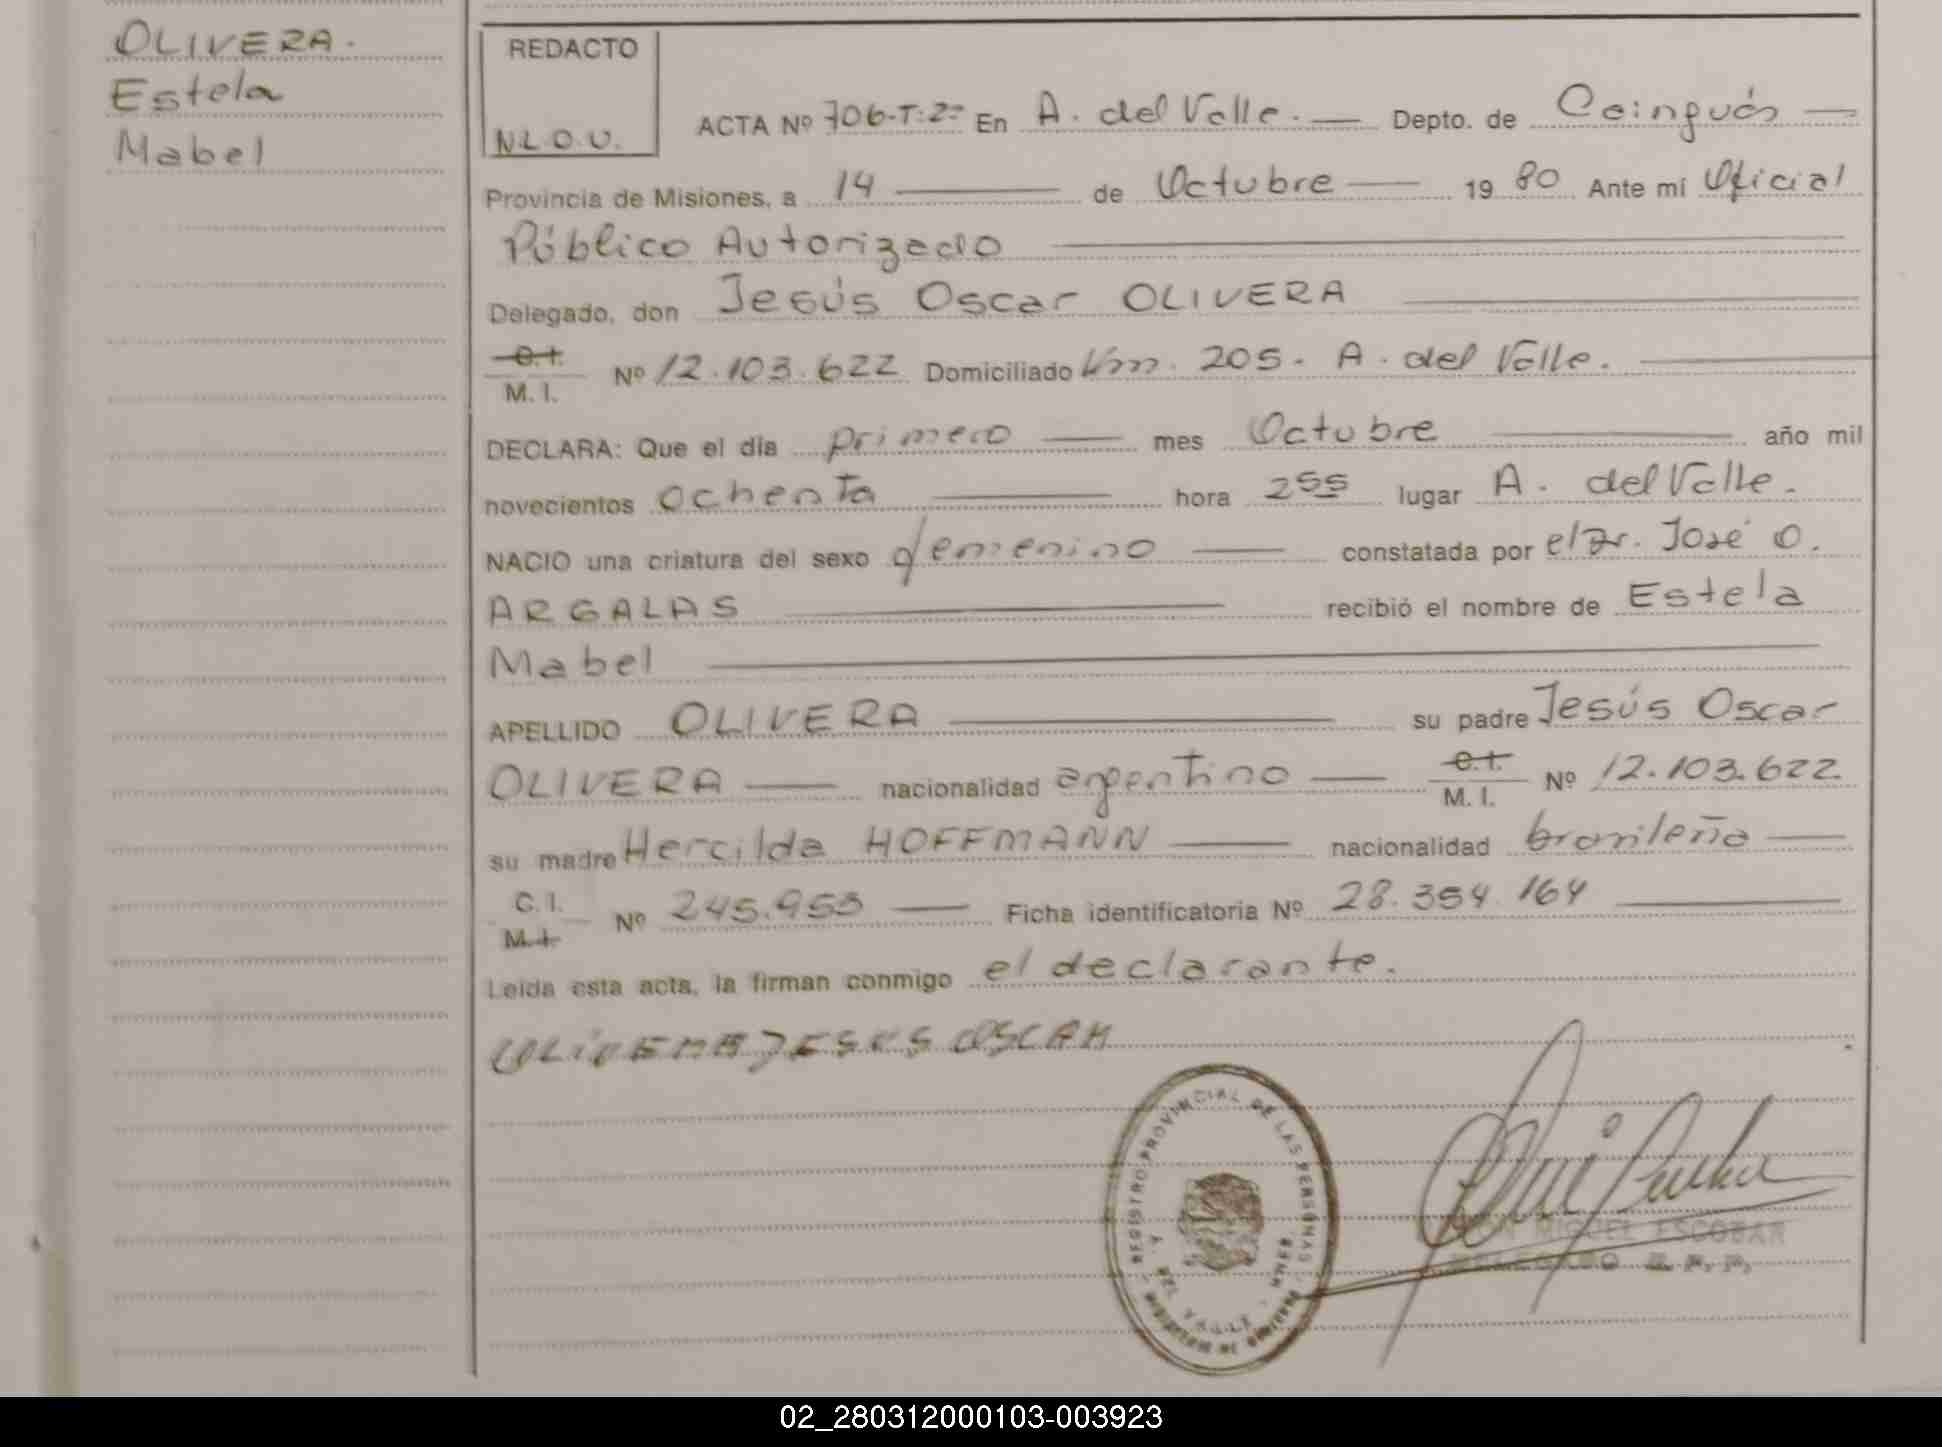 OLIVERA.
Estela
Mabel
REDACTO
N.L.O.U.
ACTA Nº 706-T:2º En A. del Valle. Depto. de Cainguás
Provincia de Misiones, a 14 de Octubre 19 80 Ante mí Oficial
Público Autorizado
Delegado, don Jesús Oscar OLIVERA
C.I.
M. I. Nº 12.103.622 Domiciliado Km. 205. A. del Valle.
DECLARA: Que el día primero mes Octubre año mil
novecientos ochenta hora 2 55 lugar A. del Valle.
NACIO una criatura del sexo femenino constatada por el Dr. José O.
ARGALAS recibió el nombre de Estela
Mabel
APELLIDO OLIVERA su padre Jesús Oscar
OLIVERA nacionalidad argentino C.I. M. I. Nº 12.103.622
su madre Hercilda HOFFMANN nacionalidad brasileña
C. I.
M.I. Nº 245.953 Ficha identificatoria Nº 28.354.164
Leída esta acta, la firman conmigo el declarante.
OLIVERA JESUS OSCAR
REGISTRO PROVINCIAL DE LAS PERSONAS
A. DEL VALLE
MIGUEL ESCOBAR
DELEGADO R. P. P.
02_280312000103-003923